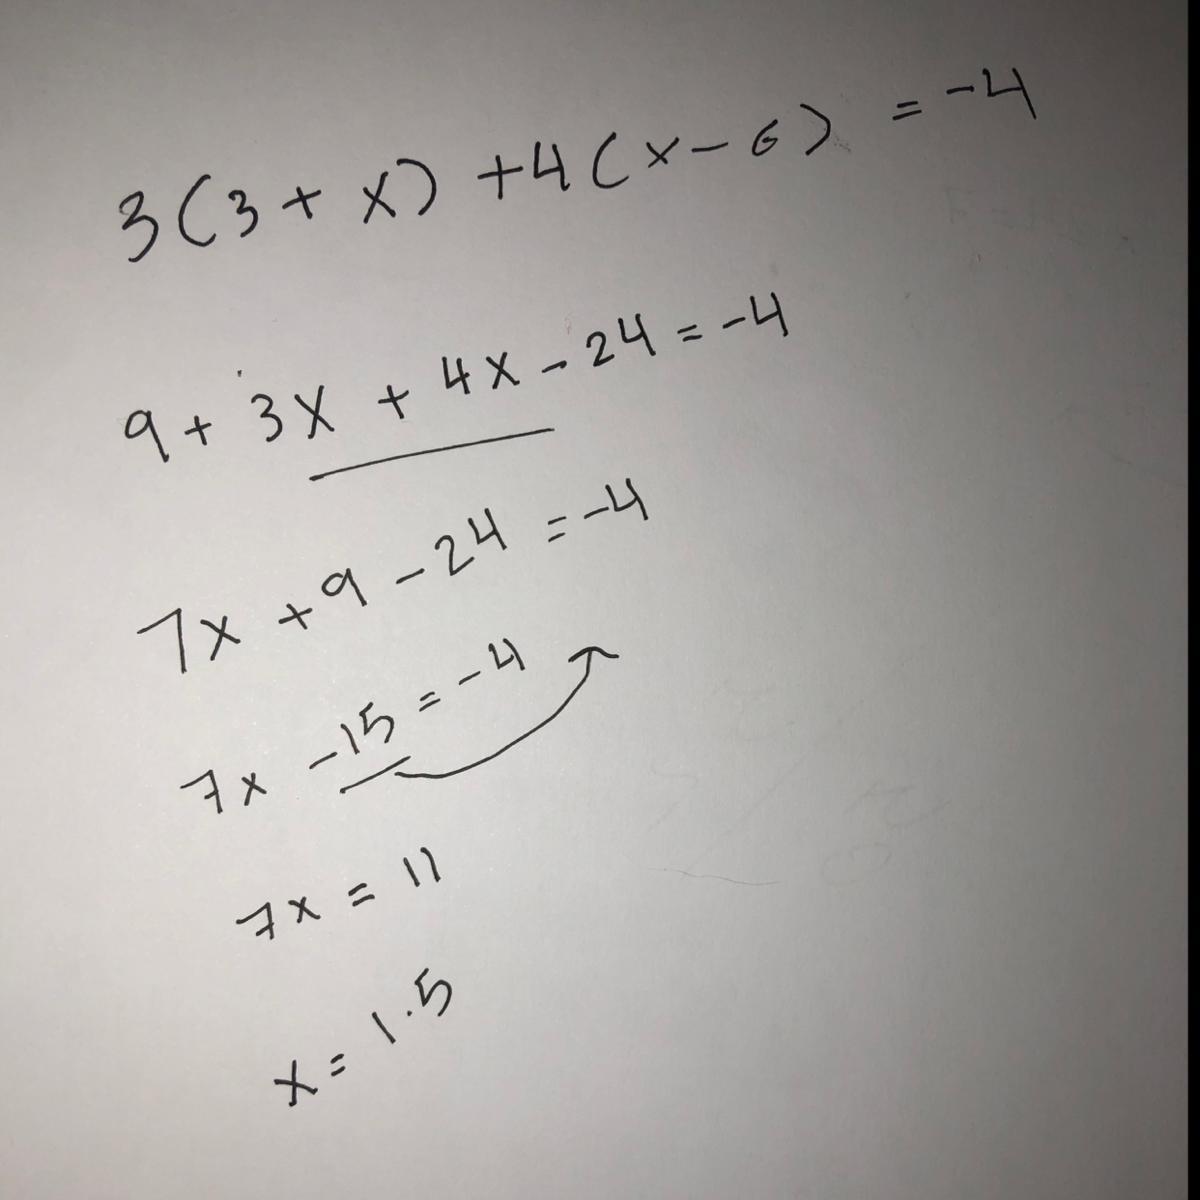 3(3 + x) + 4(x - 6) = -4
9 + 3x + 4x - 24 = -4
7x + 9 - 24 = -4
7x - 15 = -4
7x = 11
x = 1.5